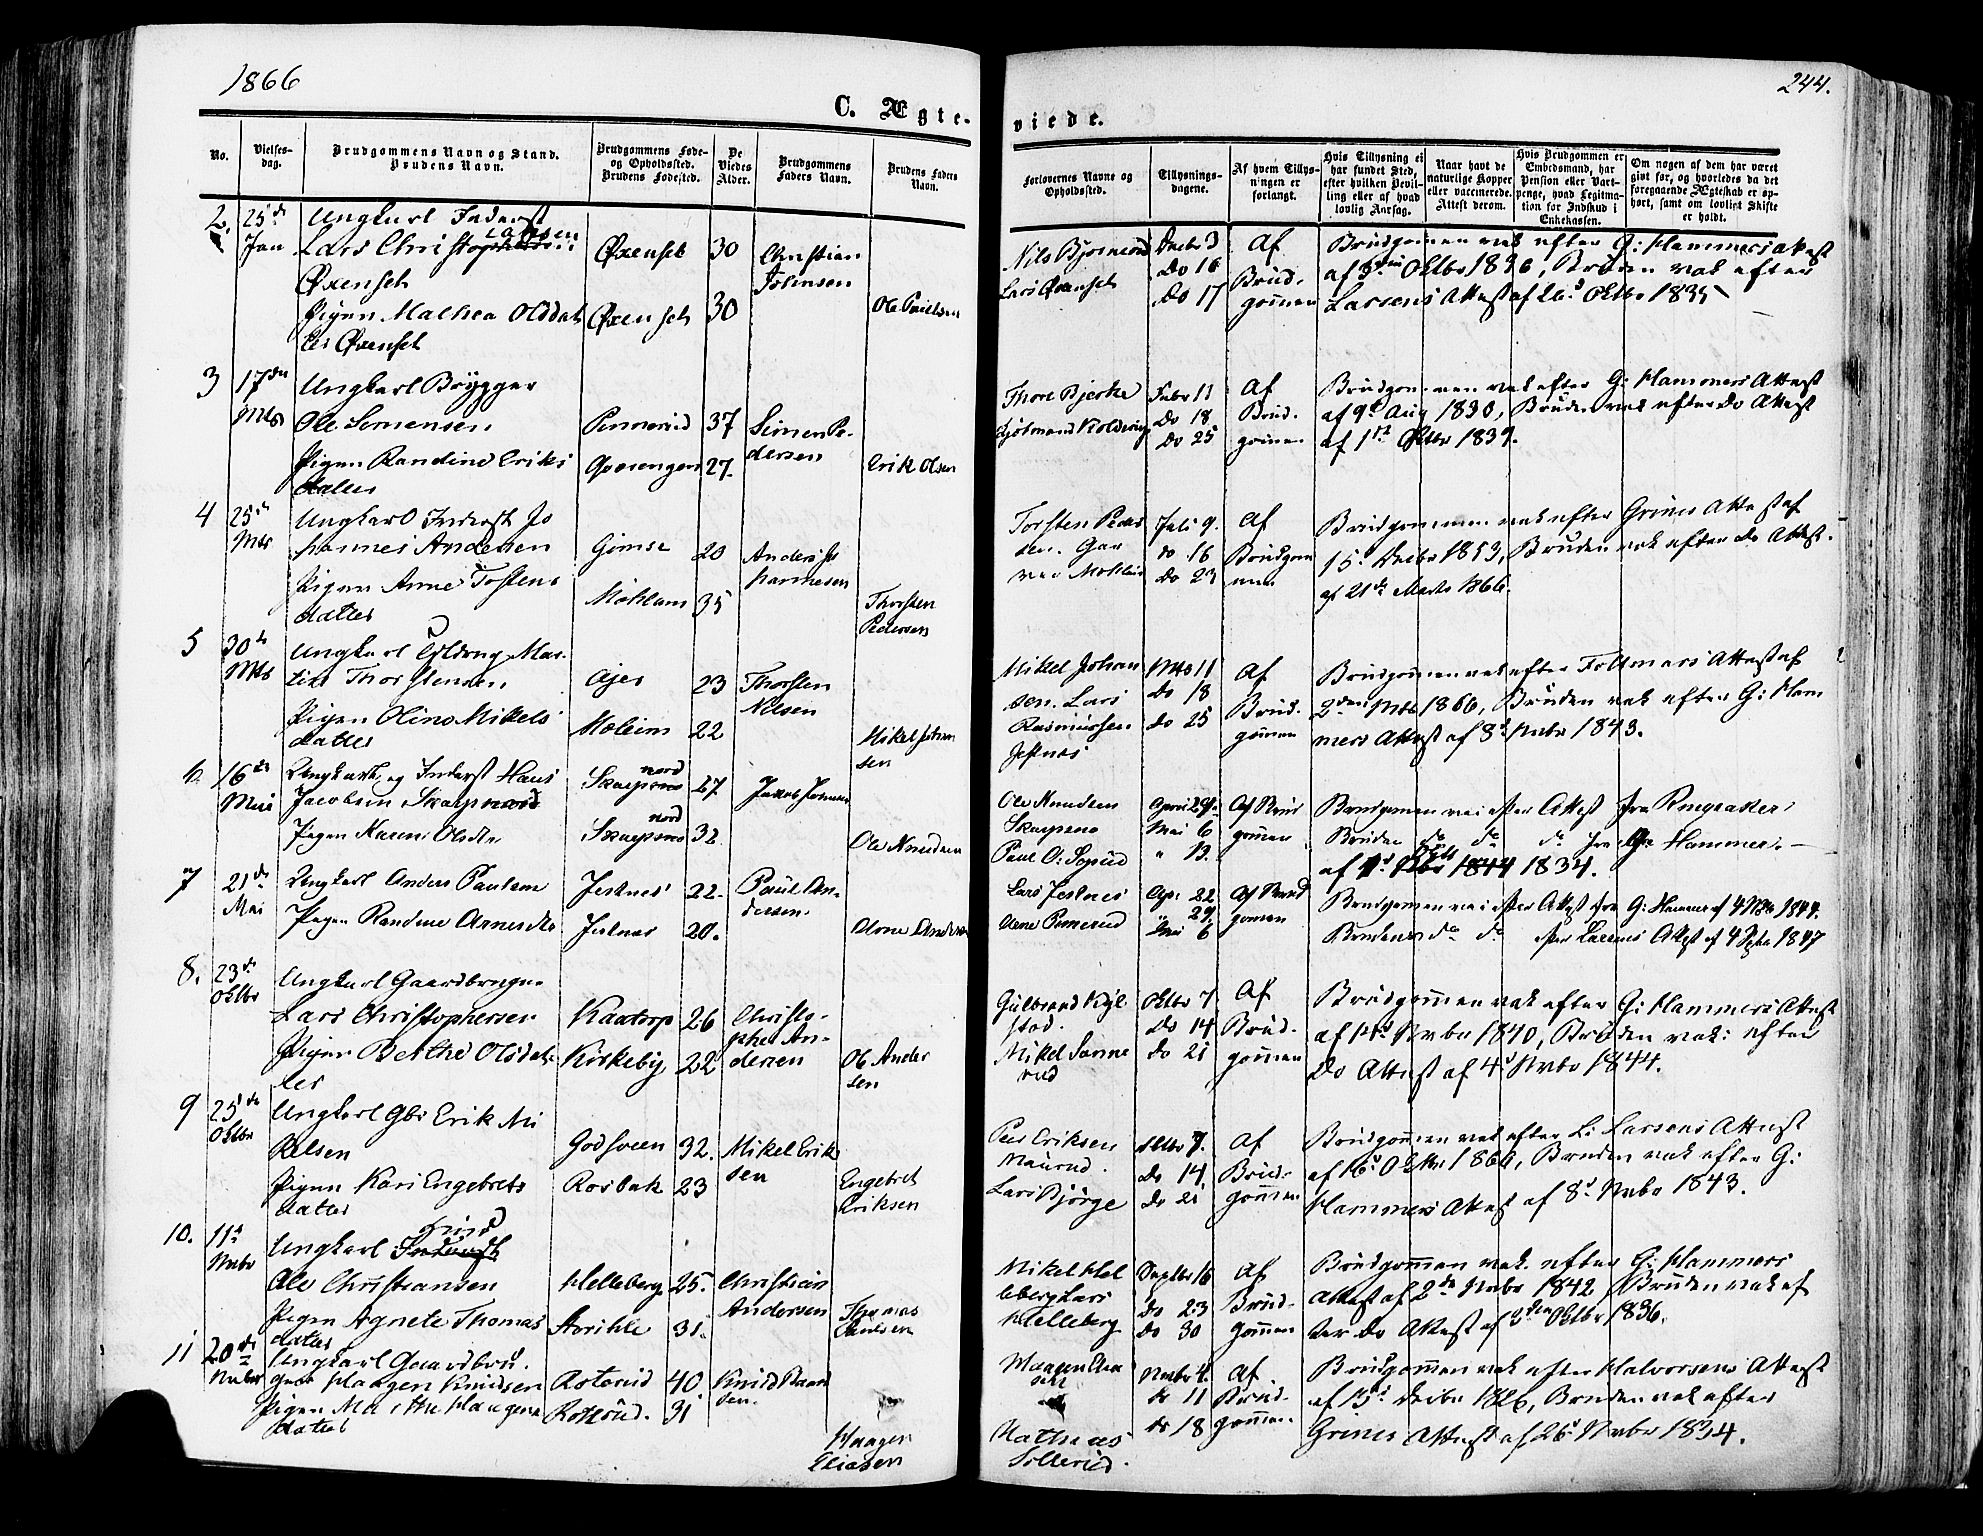 1866
244.
C. Ægte-
viede.
No.
Vielses-
dag.
Brudgommens Navn og Stand.
Brudens Navn.
Brudgommens Føde-
og Opholdssted.
Brudens Fødested.
De
Viedes
Alder.
Brudgommens
Faders Navn.
Brudens Faders
Navn.
Forlovernes Navne og
Opholdssted.
Tillysnings-
dagene.
Af hvem Tillys-
ningen er
forlangt.
Hvis Tillysning ei
har fundet Sted,
efter hvilken Bevil-
ling eller af hvad
lovlig Aarsag.
Naar havt de
naturlige Kopper
eller vaccinerede.
Attest derom.
Hvis Brudgommen er
Embedsmand, har
Pension eller Vart-
penge, hvad Legitima-
tion for Indskud i
Enkekassen.
Om nogen af dem har været
givt før, og hvorledes da det
foregaaende Ægteskab er op-
hørt, samt om lovligt Skifte
er holdt.
2. 25de
Jan
Ungkarl Inderst
Larsen
Lars
Øxenset
Pigen Mathea Olsdat
ter Øxenset
Øxenset 30
Øxenset 30
Christian
Johnsen
Ole Paulsen
Nils
Lars Øxenset
Decbr 3
Do 16
Do 17
Af
Brud-
gommen
Brudgommen vak efter G: Hammers Attest
af Oktbr 1836, Bruden vak efter
Larsens Attest af 26d Oktbr 1835
3 17de
Mts
Ungkarl Brygger
Ole Simensen
Pigen Randine Eriks
datter
Pennerud 37
Gaasengen 27.
Simen Pe-
dersen
Erik Olsen
Thore Bjerke
Febr 11
Do 18
Do 25
Af
Brud-
gommen
Brudgommen vak efter G: Hammers Attest
af 9d Aug 1830, Bruden vak efter do Attest
af 1ste Oktbr 1839.
4 25de
Mts
Ungkarl Inderst Jo
hannes Andersen
Pigen Anne Torstens
datter
Gimse 20
35
Anders Jo
hannesen
Thorsten
Pedersen
Torsten Peder
sen.
9.
do 16
Do 23
Af
Brudgom
men
Brudgommen vak efter Grines Attest af
15d Decbr 1853, Bruden vak efter do Attest.
af 21de Marts 1866.
5 30te
Mts
Ungkarl Mar-
tin Thorstensen
Pigen Oline Mikels
datter
23
22
Thorsten
Nilsen
Mikel Johan
sen
Mikel Johan
sen. Lars
Rasmussen
Jesnes
Mts 11
Do 18
do 25
Af
Brud-
gommen
Brudgommen vak efter Foltmars Attest af
2den Mts 1866, Bruden vak efter G: Ham
mers Attest af 8d Nvbr 1843.
6. 16de
Mai
Ungkarl, og Inderst Hans
Jacobsen Skarpsnord
Pigen Karen Olsdtr
nord
Skarpsno 27
nord
Skarpsno 32
Ole Knudsen
Ole Knudsen
Skarpsno
Paul O.
April 29.
Mai 6
" 13.
Af Brud
gommen
Brudgommen vac: efter Attest fra Ringsaker
Bruden do do do fra G. Hammer.
1834.
7 21de
Mai
Ungkarl Anders Paulsen
Pigen Randine Arnesdtr
Jesnes 22.
Jesnes 20.
Paul An-
dersen.
Arne Andersen
Lars Jesnes
Arne Pennerud
Apr. 22
" 29.
Mai 6
Af Brud
gommen
Brudgommen vac: efter Attest fra G: Hammer af 4 1844.
Bruden do do efter Larsens Attest af 4 Sptbr 1847
8. 23de
Oktbr
Ungkarl Gaardbruger
Lars Christophersen
Pigen Berthe Olsdat
ter
Kaatorp 26
Kirkeby 22
Christo-
pher An-
dersen
Ole Ander
sen
Gulbrand
stad.
Mikel
rud
Oktbr 7
Do 14
do 21
Af
Brud-
gommen
Brudgommen vak efter G: Hammers Attest
af 14d Nvbr 1840, Bruden vak: efter
Do Attest af 4d Nvbr 1844.
9 25de
Oktbr
Ungkarl Gbr Erik Mi
kelsen
Pigen Kari Engebrets
datter
Godsveen 32.
Rosbak 23
Mikel Erik
sen
Engebret
Eriksen
Per Eriksen
Maurud.
Lars Bjørge
Oktbr 7.
do 14
do 21
Af
Brud-
gommen
Brudgommen vak efter L: Larsens Attest
af 16d Oktbr 1866, Bruden vak efter G:
Hammers Attest af 8d Nvbr 1843.
10. 11te
Nvbr
Ungkarl Inderst
Ole Christiansen
Pigen Agnete Thomas
datter
Helleberg 25.
31.
Christian
Andersen
Thomas
Paulsen
Mikel Hel
leberg Lars
Helleberg
Septbr 16
Do 23
Do 30
Af
Brud-
gommen
Brudgommen vak. efter G: Hammers
Attest af 2de Nvbr 1842 Bruden vak ef
ter do Attest af Oktbr 1836.
11 20de
Nvbr
Ungkarl Gaardbru-
ger Haagen Knudsen
Pigen Marthe Haagens
datter
Roterud 40
Roterud. 31
Knud
sen.
Haagen
Eliasen
Haagen Elia
sen
Mathias
Sollerud.
Nvbr 4.
do 11
do 18
Af
Brud-
gommen
Brudgommen vak efter Halvorsens Attest
af Decbr 1826, Bruden vak efter
Grines Attest af 26d Nvbr 1834.